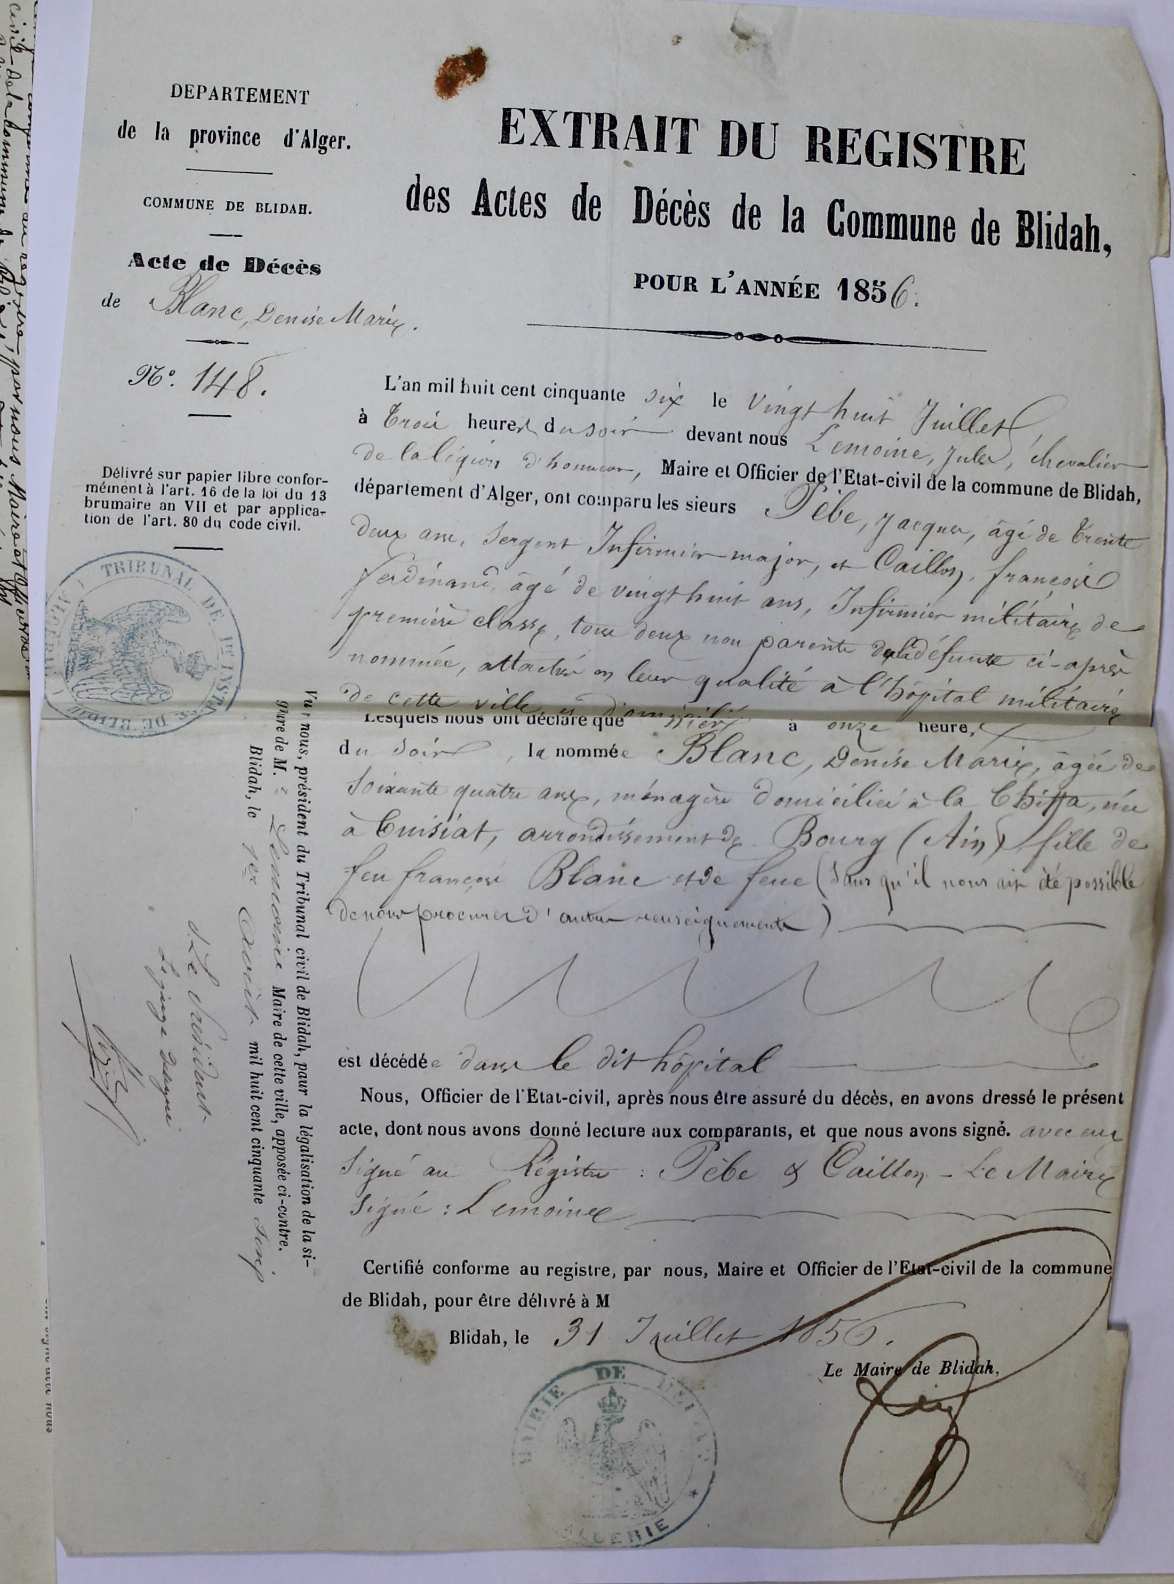 DEPARTEMENT
de la province d'Alger.
COMMUNE DE BLIDAH.
Acte de Décès
de Blanc, Denise Marie.
N°. 148.
Délivré sur papier libre confor-
mément à l'art. 16 de la loi du 13
brumaire an VII et par applica-
tion de l'art. 80 du code civil.
TRIBUNAL DE 1re INSTANCE DE BLIDAH
EXTRAIT DU REGISTRE
des Actes de Décès de la Commune de Blidah,
POUR L'ANNÉE 1856.
L'an mil huit cent cinquante six le vingt huit Juillet
à trois heures du soir devant nous Lemoine, Jules, chevalier
de la légion d'honneur, Maire et Officier de l'Etat-civil de la commune de Blidah,
département d'Alger, ont comparu les sieurs Pèbe, Jacques, âgé de trente
deux ans, Sergent Infirmier major, et Caillon, françois
ferdinand, âgé de vingt huit ans, Infirmier militaire de
première classe, tous deux non parents de la défunte ci-après
nommée, attachés en leur qualité à l'hôpital militaire
de cette ville, et domiciliés
Lesquels nous ont déclaré que à onze heures
du soir, la nommée Blanc, Denise Marie, âgée de
soixante quatre ans, ménagère domiciliée à la Chiffa, née
à Cuisiat, arrondissement de Bourg (Ain) fille de
feu françois Blanc et de feue (sans qu'il nous ait été possible
de nous procurer d'autres renseignements)
est décédée dans le dit hôpital
Nous, Officier de l'Etat-civil, après nous être assuré du décès, en avons dressé le présent
acte, dont nous avons donné lecture aux comparants, et que nous avons signé. avec eux
Signé au Régistre : Pèbe & Caillon - Le Maire
signé : Lemoine
Certifié conforme au registre, par nous, Maire et Officier de l'Etat-civil de la commune
de Blidah, pour être délivré à M
Blidah, le 31 Juillet 1856.
Le Maire de Blidah,
MAIRIE DE BLIDAH
ALGERIE
Vu par nous, président du Tribunal civil de Blidah, pour la légalisation de la si-
gnature de M. Lemoine Maire de cette ville, apposée ci-contre.
Blidah, le 1er Août mil huit cent cinquante six
Le Président
Le juge